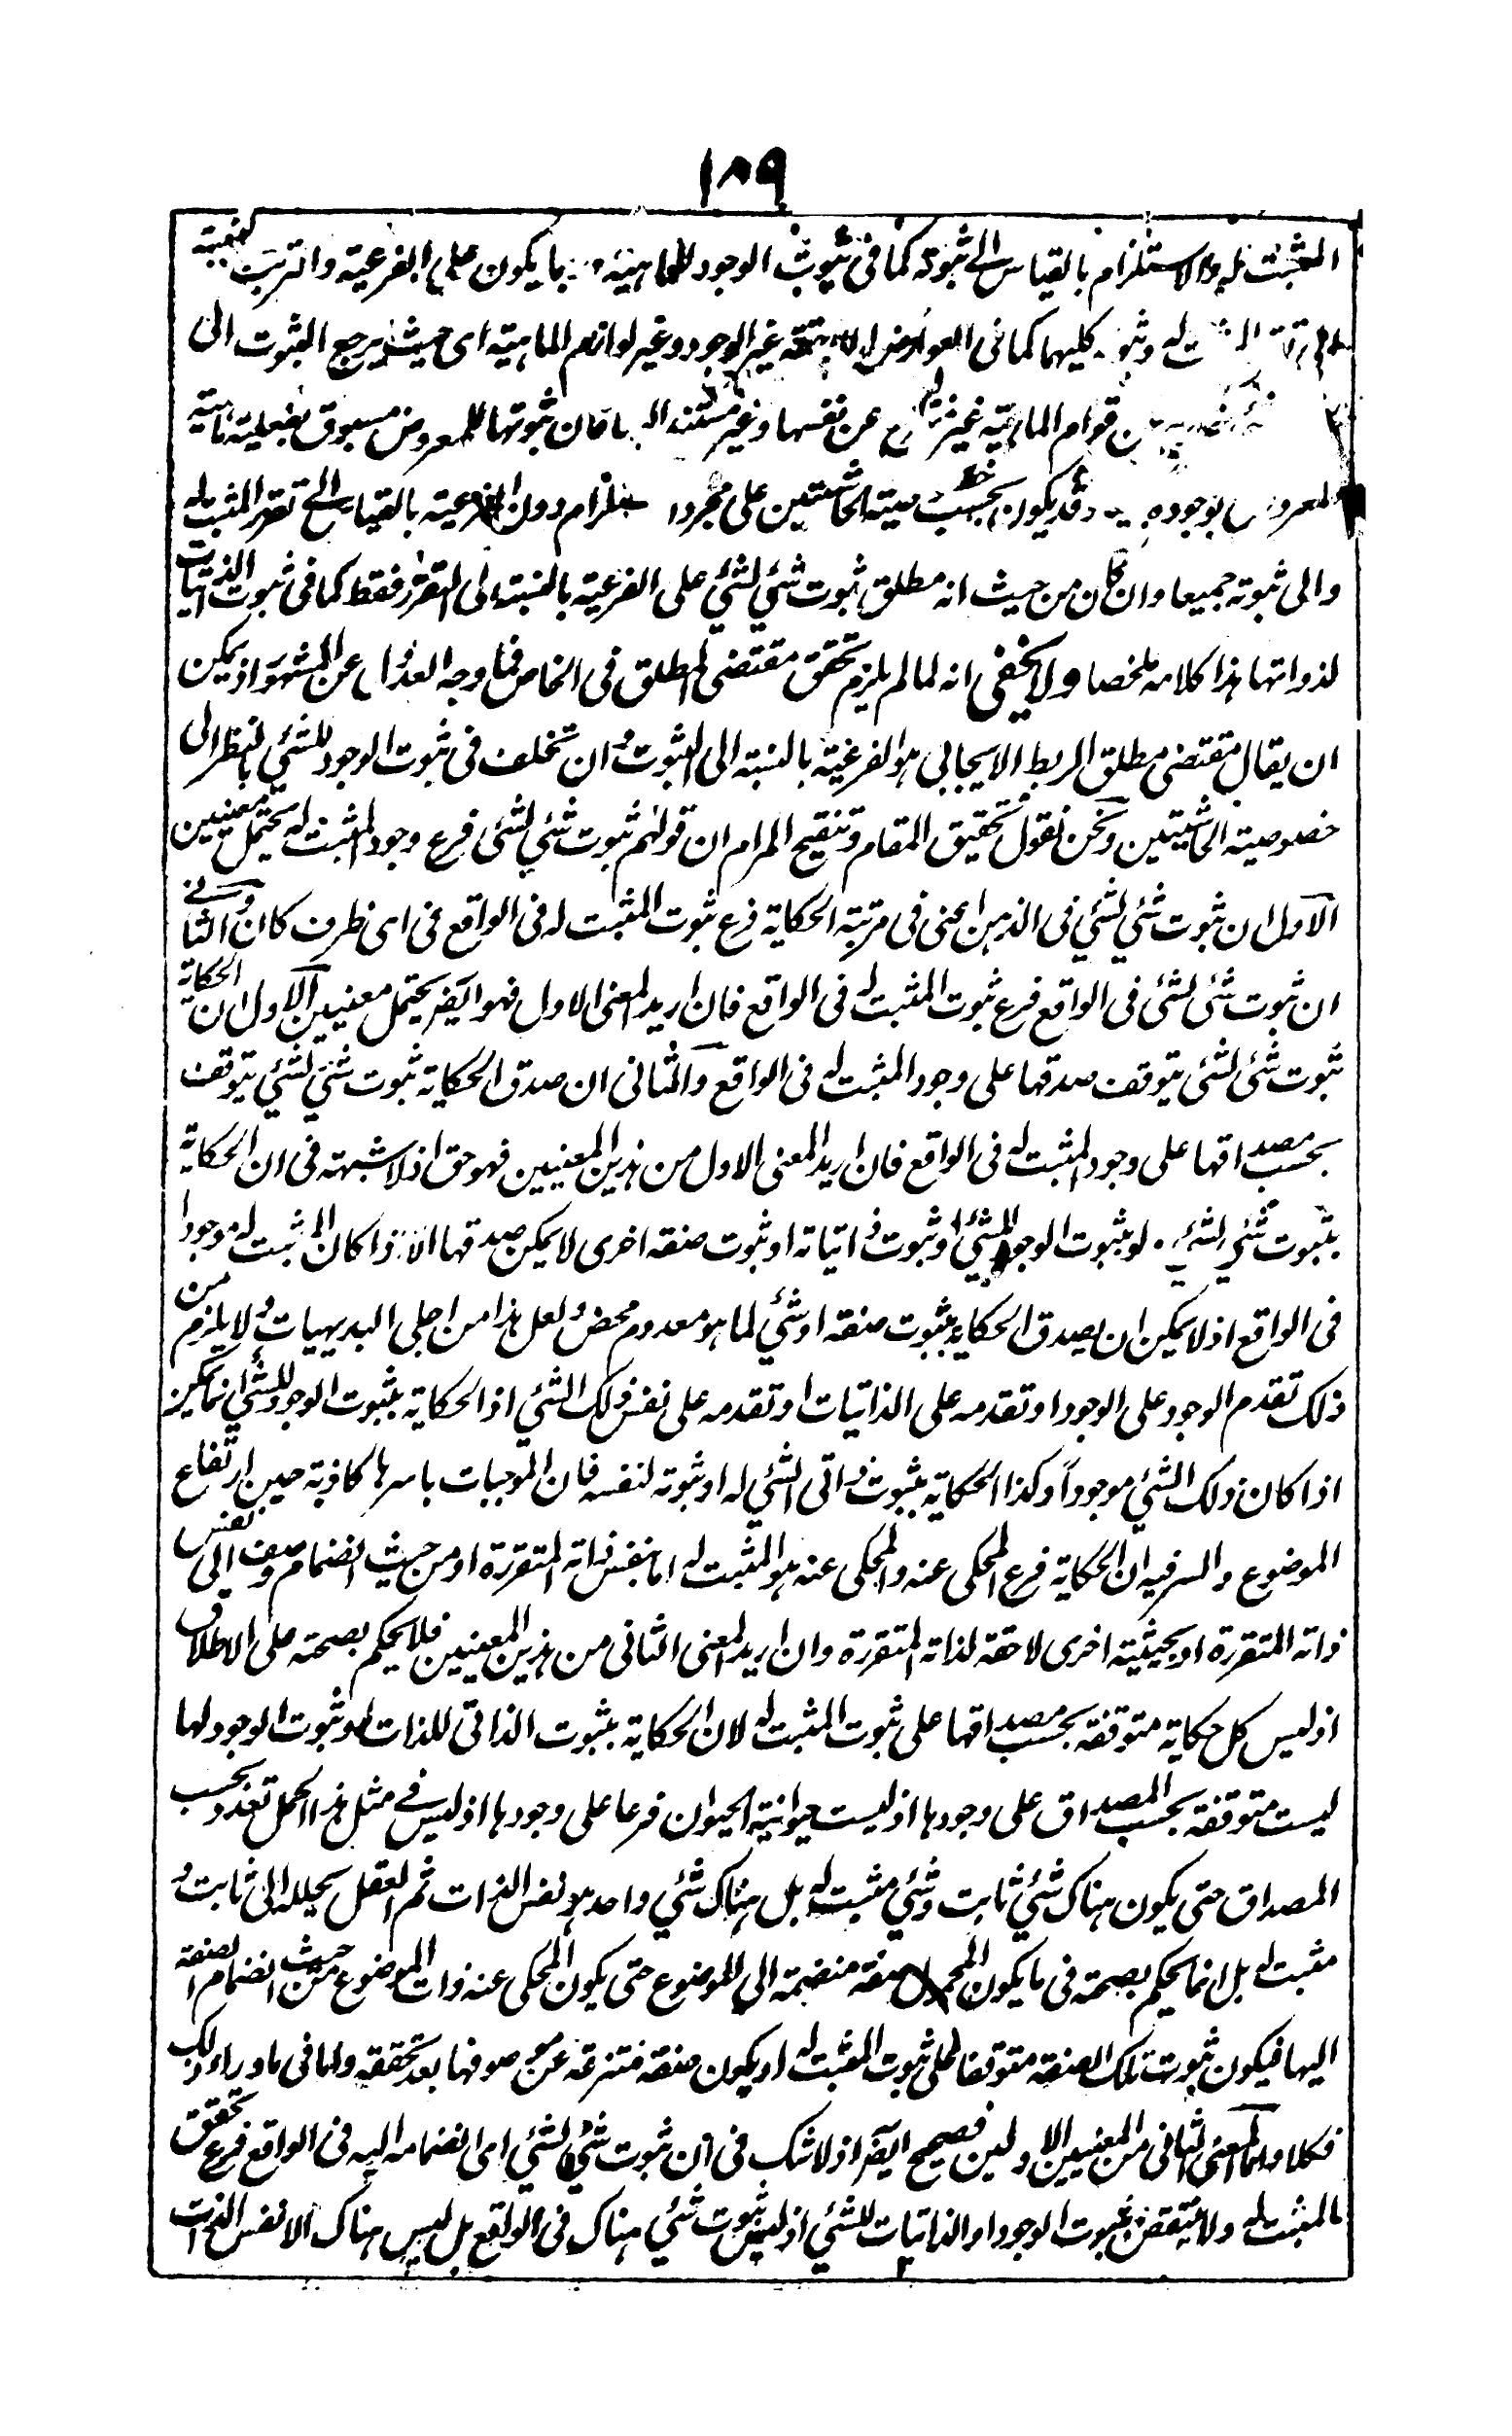 ١٨٩
المثبت له والاستلزام بالقياس الى ثبوته كما فى ثبوت الوجود للماهية ما يكون على الفرعية والترتب
له وثبو كليهما كما فى العوارض غير الوجود وغير لوازم الماهية اى حيث يرجع الثبوت الى
قوام الماهية غير عن نفسها وغير مستند فان ثبوتها للمعروض مسبوق بفعلية
بوجوده وقد يكون بحسب الحاشيتين على مجرد دون الفرعية بالقياس الى تقرر المثبت له
والى ثبوته جميعا وان كان من حيث انه مطلق ثبوت شئ لشئ على الفرعية بالنسبة الى التقرر فقط كما فى ثبوت الذاتيات
لذواتها هذا كلامه ملخصا ولا يخفى انه لما لم يلزم تحقق مقتضى المطلق فى الخاص فما وجه العدول عن المشهور اذ يمكن
ان يقال مقتضى مطلق الربط الايجابى هو الفرعية بالنسبة الى الثبوت وان تخلف فى ثبوت الوجود للشئ بالنظر الى
خصوصية الحاشيتين ونحن نقول تحقيق المقام وتنقيح المرام ان قولهم ثبوت شئ لشئ فرع وجود المثبت له يحتمل معنيين
الاول ان ثبوت شئ لشئ فى الذهن اعنى فى مرتبة الحكاية فرع ثبوت المثبت له فى الواقع فى اى ظرف كان والثانى
ان ثبوت شئ لشئ فى الواقع فرع ثبوت المثبت له فى الواقع فان اريد المعنى الاول فهو ايضر يحتمل معنيين الاول ان الحكاية
ثبوت شئ لشئ يتوقف صدقها على وجود المثبت له فى الواقع والثانى ان صدق الحكاية ثبوت شئ لشئ يتوقف
بحسب مصداقها على وجود المثبت له فى الواقع فان اريد المعنى الاول من هذين المعنيين فهو حق اذ لا شبهة فى ان الحكاية
بثبوت شئ لشئ ولو بثبوت الوجود للشئ او ثبوت ذاتياته او ثبوت صفة اخرى لا يمكن صدقها الا اذا كان المثبت له موجودا
فى الواقع اذ لا يمكن ان يصدق الحكاية بثبوت صفة او شئ لما هو معدوم محض ولعل هذا من اجلى البديهيات ولا يلزم من
ذلك تقدم الوجود على الوجود او تقدمه على الذاتيات او تقدمه على نفس ذلك الشئ اذ الحكاية بثبوت الوجود للشئ انما يمكن
اذا كان ذلك الشئ موجوداً وكذا الحكاية بثبوت ذاتى الشئ له او ثبوته لنفسه فان الموجبات باسرها كاذبة حين ارتفاع
الموضوع والسر فيه ان الحكاية فرع المحكى عنه والمحكى عنه هو المثبت له اما بنفس ذاته المتقررة او من حيث انضمام وصف الى نفس
ذاته المتقررة او بحيثية اخرى لاحقة لذاته المتقررة وان اريد المعنى الثانى من هذين المعنيين فلا يحكم بصحته على الاطلاق
اذ ليس كل حكاية متوقفة بحسب مصداقها على ثبوت المثبت له لان الحكاية بثبوت الذاتى للذات او ثبوت الوجود لها
ليست متوقفة بحسب المصداق على وجودها اذ ليست حيوانية الحيوان فرعا على وجودها اذ ليس فى مثل هذا الحمل تعدد بحسب
المصداق حتى يكون هناك شئ ثابت وشئ مثبت له بل هناك شئ واحد هو نفس الذات ثم العقل يحلله الى ثابت و
مثبت له بل انما يحكم بصحته فى ما يكون المحمول صفة منضمة الى الموضوع حتى يكون المحكى عنه ذات الموضوع من حيث انضمام الصفة
اليها فيكون ثبوت تلك الصفة متوقفا على ثبوت المثبت له او يكون صفة منتزعة عن موصوفها بعد تحققه واما فى ما وراء ذلك
فكلا واما المعنى الثانى من المعنيين الاولين فصحيح ايضر اذ لا شك فى ان ثبوت شئ لشئ اى انضمامه اليه فى الواقع فرع تحقق
المثبت له ولا ينتقض بثبوت الوجود او الذاتيات للشئ اذ ليس ثبوت شئ هناك فى الواقع بل ليس هناك الا نفس الذات